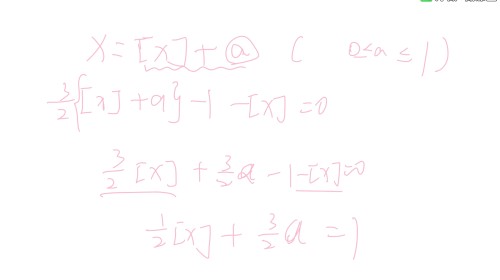 x = [x] + a ( 0 < a ≤ 1 )
3/2 {[x] + a} - 1 - [x] = 0
3/2 [x] + 3/2 a - 1 - [x] = 0
1/2 [x] + 3/2 a = 1